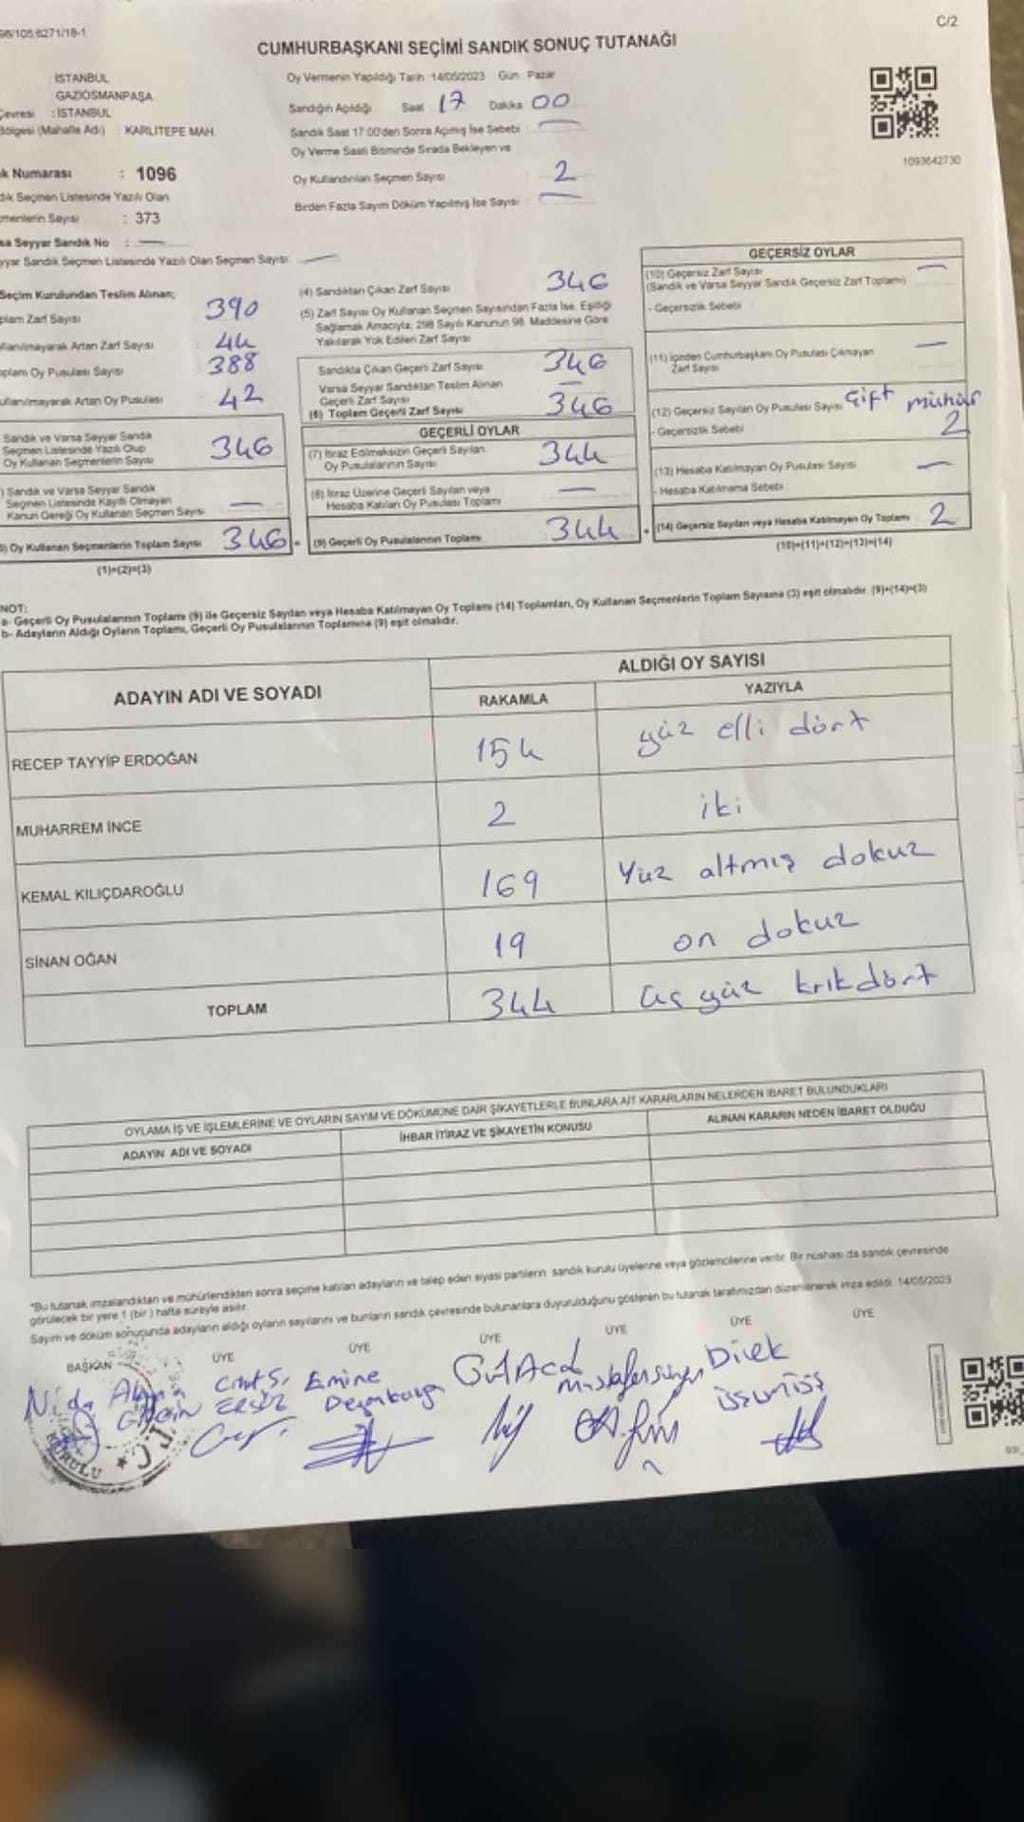 98/105.6271/18-1
C/2
CUMHURBAŞKANI SEÇİMİ SANDIK SONUÇ TUTANAĞI
İSTANBUL
GAZİOSMANPAŞA
Çevresi : İSTANBUL
Bölgesi (Mahalle Adı) : KARLITEPE MAH.
k Numarası : 1096
dık Seçmen Listesinde Yazılı Olan
menlerin Sayısı : 373
sa Seyyar Sandık No : —
yyar Sandık Seçmen Listesinde Yazılı Olan Seçmen Sayısı: —
Oy Vermenin Yapıldığı Tarih :14/05/2023 Gün: Pazar
Sandığın Açıldığı Saat 17 Dakika 00
Sandık Saat 17:00'den Sonra Açılmış İse Sebebi —
Oy Verme Saati Bitiminde Sırada Bekleyen ve
Oy Kullandırılan Seçmen Sayısı 2
Birden Fazla Sayım Döküm Yapılmış İse Sayısı —
1093642730
Seçim Kurulundan Teslim Alınan;
plam Zarf Sayısı 390
ullanılmayarak Artan Zarf Sayısı 44
oplam Oy Pusulası Sayısı 388
ullanılmayarak Artan Oy Pusulası 42
Sandık ve Varsa Seyyar Sandık
Seçmen Listesinde Yazılı Olup
Oy Kullanan Seçmenlerin Sayısı 346
) Sandık ve Varsa Seyyar Sandık
Seçmen Listesinde Kayıtlı Olmayan
Kanun Gereği Oy Kullanan Seçmen Sayısı —
3) Oy Kullanan Seçmenlerin Toplam Sayısı 346
(1)+(2)=(3)
(4) Sandıktan Çıkan Zarf Sayısı 346
(5) Zarf Sayısı Oy Kullanan Seçmen Sayısından Fazla İse, Eşitliği
Sağlamak Amacıyla, 298 Sayılı Kanunun 98. Maddesine Göre
Yakılarak Yok Edilen Zarf Sayısı
Sandıkta Çıkan Geçerli Zarf Sayısı 346
Varsa Seyyar Sandıktan Teslim Alınan
Geçerli Zarf Sayısı —
(6) Toplam Geçerli Zarf Sayısı 346
GEÇERLİ OYLAR
(7) İtiraz Edilmeksizin Geçerli Sayılan
Oy Pusulalarının Sayısı 344
(8) İtiraz Üzerine Geçerli Sayılan veya
Hesaba Katılan Oy Pusulası Toplamı —
(9) Geçerli Oy Pusulalarının Toplamı 344
GEÇERSİZ OYLAR
(10) Geçersiz Zarf Sayısı —
(Sandık ve Varsa Seyyar Sandık Geçersiz Zarf Toplamı)
- Geçersizlik Sebebi
(11) İçinden Cumhurbaşkanı Oy Pusulası Çıkmayan —
Zarf Sayısı
(12) Geçersiz Sayılan Oy Pusulası Sayısı Çift mühür
- Geçersizlik Sebebi 2
(13) Hesaba Katılmayan Oy Pusulası Sayısı —
- Hesaba Katılmama Sebebi
(14) Geçersiz Sayılan veya Hesaba Katılmayan Oy Toplamı 2
(10)+(11)+(12)+(13)=(14)
NOT:
a- Geçerli Oy Pusulalarının Toplamı (9) ile Geçersiz Sayılan veya Hesaba Katılmayan Oy Toplamı (14) Toplamları, Oy Kullanan Seçmenlerin Toplam Sayısına (3) eşit olmalıdır. (9)+(14)=(3)
b- Adayların Aldığı Oyların Toplamı, Geçerli Oy Pusulalarının Toplamına (9) eşit olmalıdır.
ADAYIN ADI VE SOYADI
ALDIĞI OY SAYISI
RAKAMLA YAZIYLA
RECEP TAYYİP ERDOĞAN 154 yüz elli dört
MUHARREM İNCE 2 iki
KEMAL KILIÇDAROĞLU 169 Yüz altmış dokuz
SİNAN OĞAN 19 on dokuz
TOPLAM 344 üç yüz krıkdört
OYLAMA İŞ VE İŞLEMLERİNE VE OYLARIN SAYIM VE DÖKÜMÜNE DAİR ŞİKAYETLERLE BUNLARA AİT KARARLARIN NELERDEN İBARET BULUNDUKLARI
ADAYIN ADI VE SOYADI İHBAR İTİRAZ VE ŞİKAYETİN KONUSU ALINAN KARARIN NEDEN İBARET OLDUĞU
*Bu tutanak imzalandıktan ve mühürlendikten sonra seçime katılan adayların ve talep eden siyasi partilerin sandık kurulu üyelerine veya gözlemcilerine verilir. Bir nüshası da sandık çevresinde
görülecek bir yere 1 (bir) hafta süreyle asılır.
Sayım ve döküm sonucunda adayların aldığı oyların sayılarını ve bunların sandık çevresinde bulunanlara duyurulduğunu gösteren bu tutanak tarafımızdan düzenlenerek imza edildi. 14/05/2023
BAŞKAN ÜYE ÜYE ÜYE ÜYE ÜYE ÜYE
Emine
Dilek
KURULU
T.C.